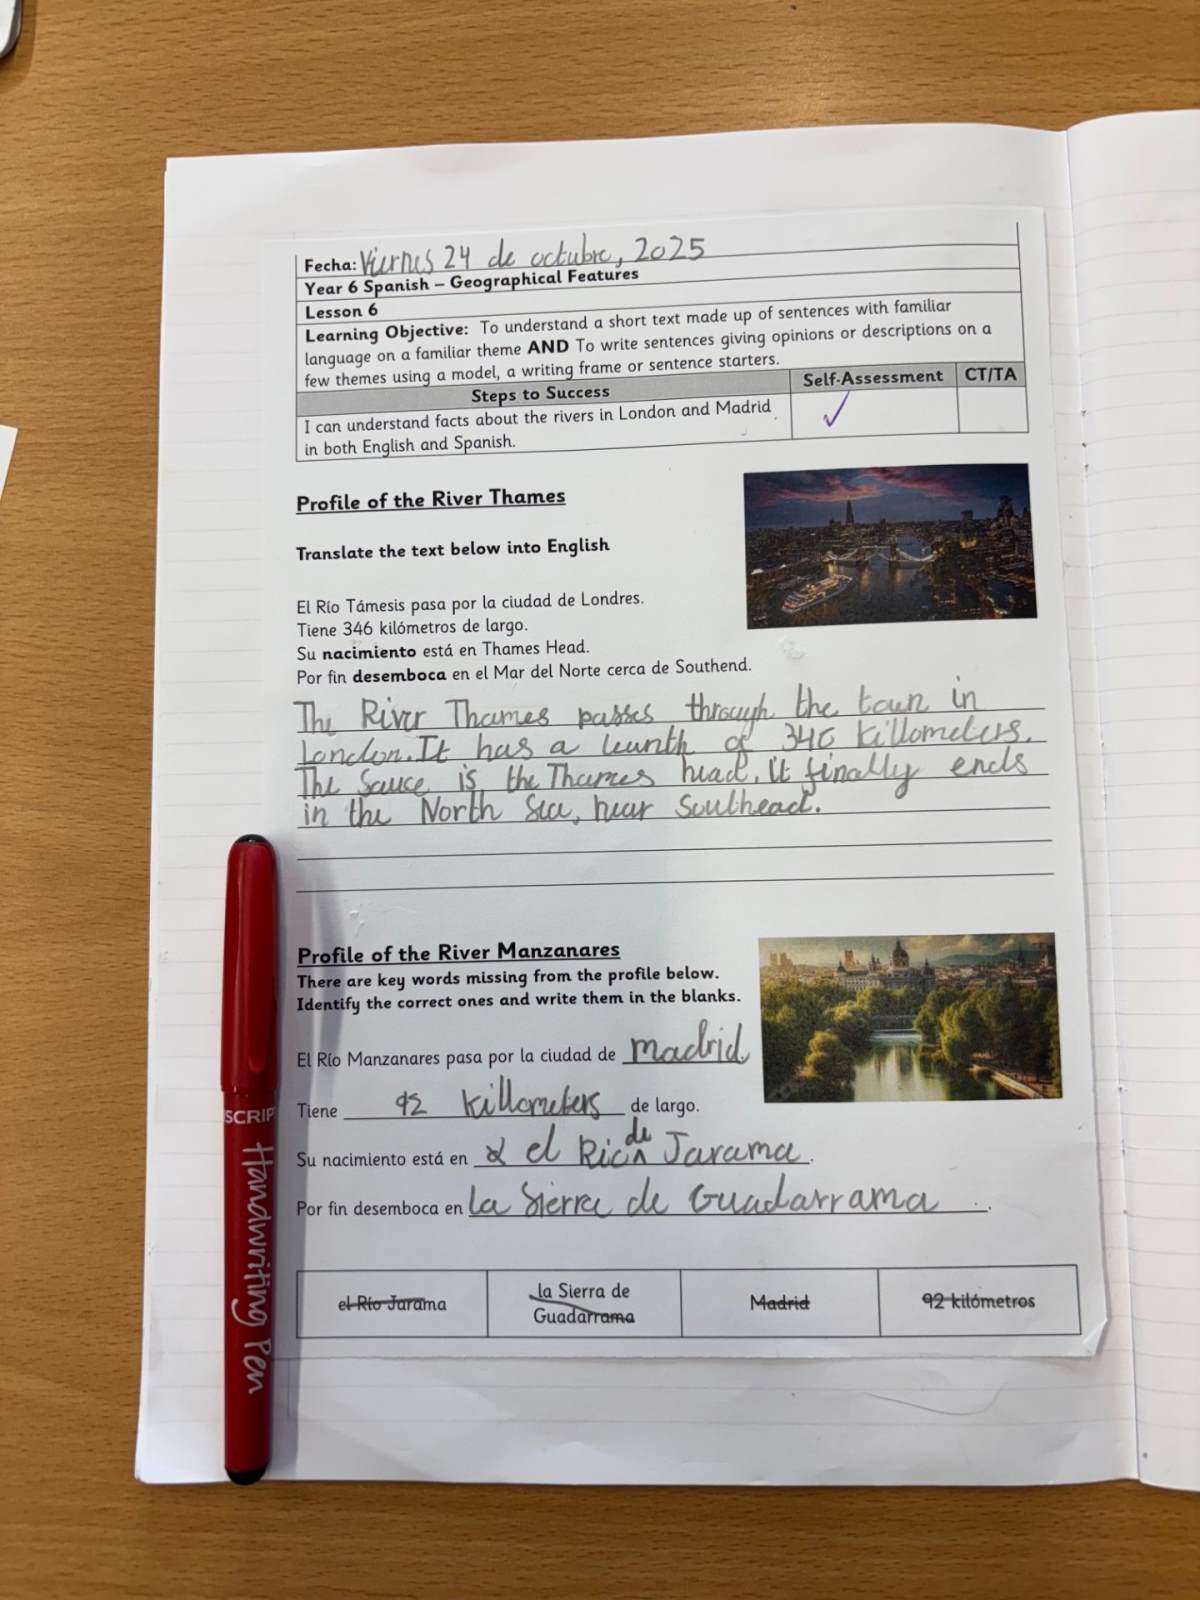 Fecha: Viernes 24 de octubre, 2025
Year 6 Spanish – Geographical Features
Lesson 6
Learning Objective: To understand a short text made up of sentences with familiar
language on a familiar theme AND To write sentences giving opinions or descriptions on a
few themes using a model, a writing frame or sentence starters.
Steps to Success Self-Assessment CT/TA
I can understand facts about the rivers in London and Madrid
in both English and Spanish.
Profile of the River Thames
Translate the text below into English
El Río Támesis pasa por la ciudad de Londres.
Tiene 346 kilómetros de largo.
Su nacimiento está en Thames Head.
Por fin desemboca en el Mar del Norte cerca de Southend.
The River Thames passes through the town in
London. It has a leunth of 346 killometers.
The Sauce is the Thames head. it finally ends
in the North Sea, near Southead.
Profile of the River Manzanares
There are key words missing from the profile below.
Identify the correct ones and write them in the blanks.
El Río Manzanares pasa por la ciudad de madrid.
Tiene 92 killometers de largo.
Su nacimiento está en el Rio de Jarama.
Por fin desemboca en la Sierra de Guadarrama.
el Río Jarama
la Sierra de
Guadarrama
Madrid
92 kilómetros
SCRIP
Handwriting Pen